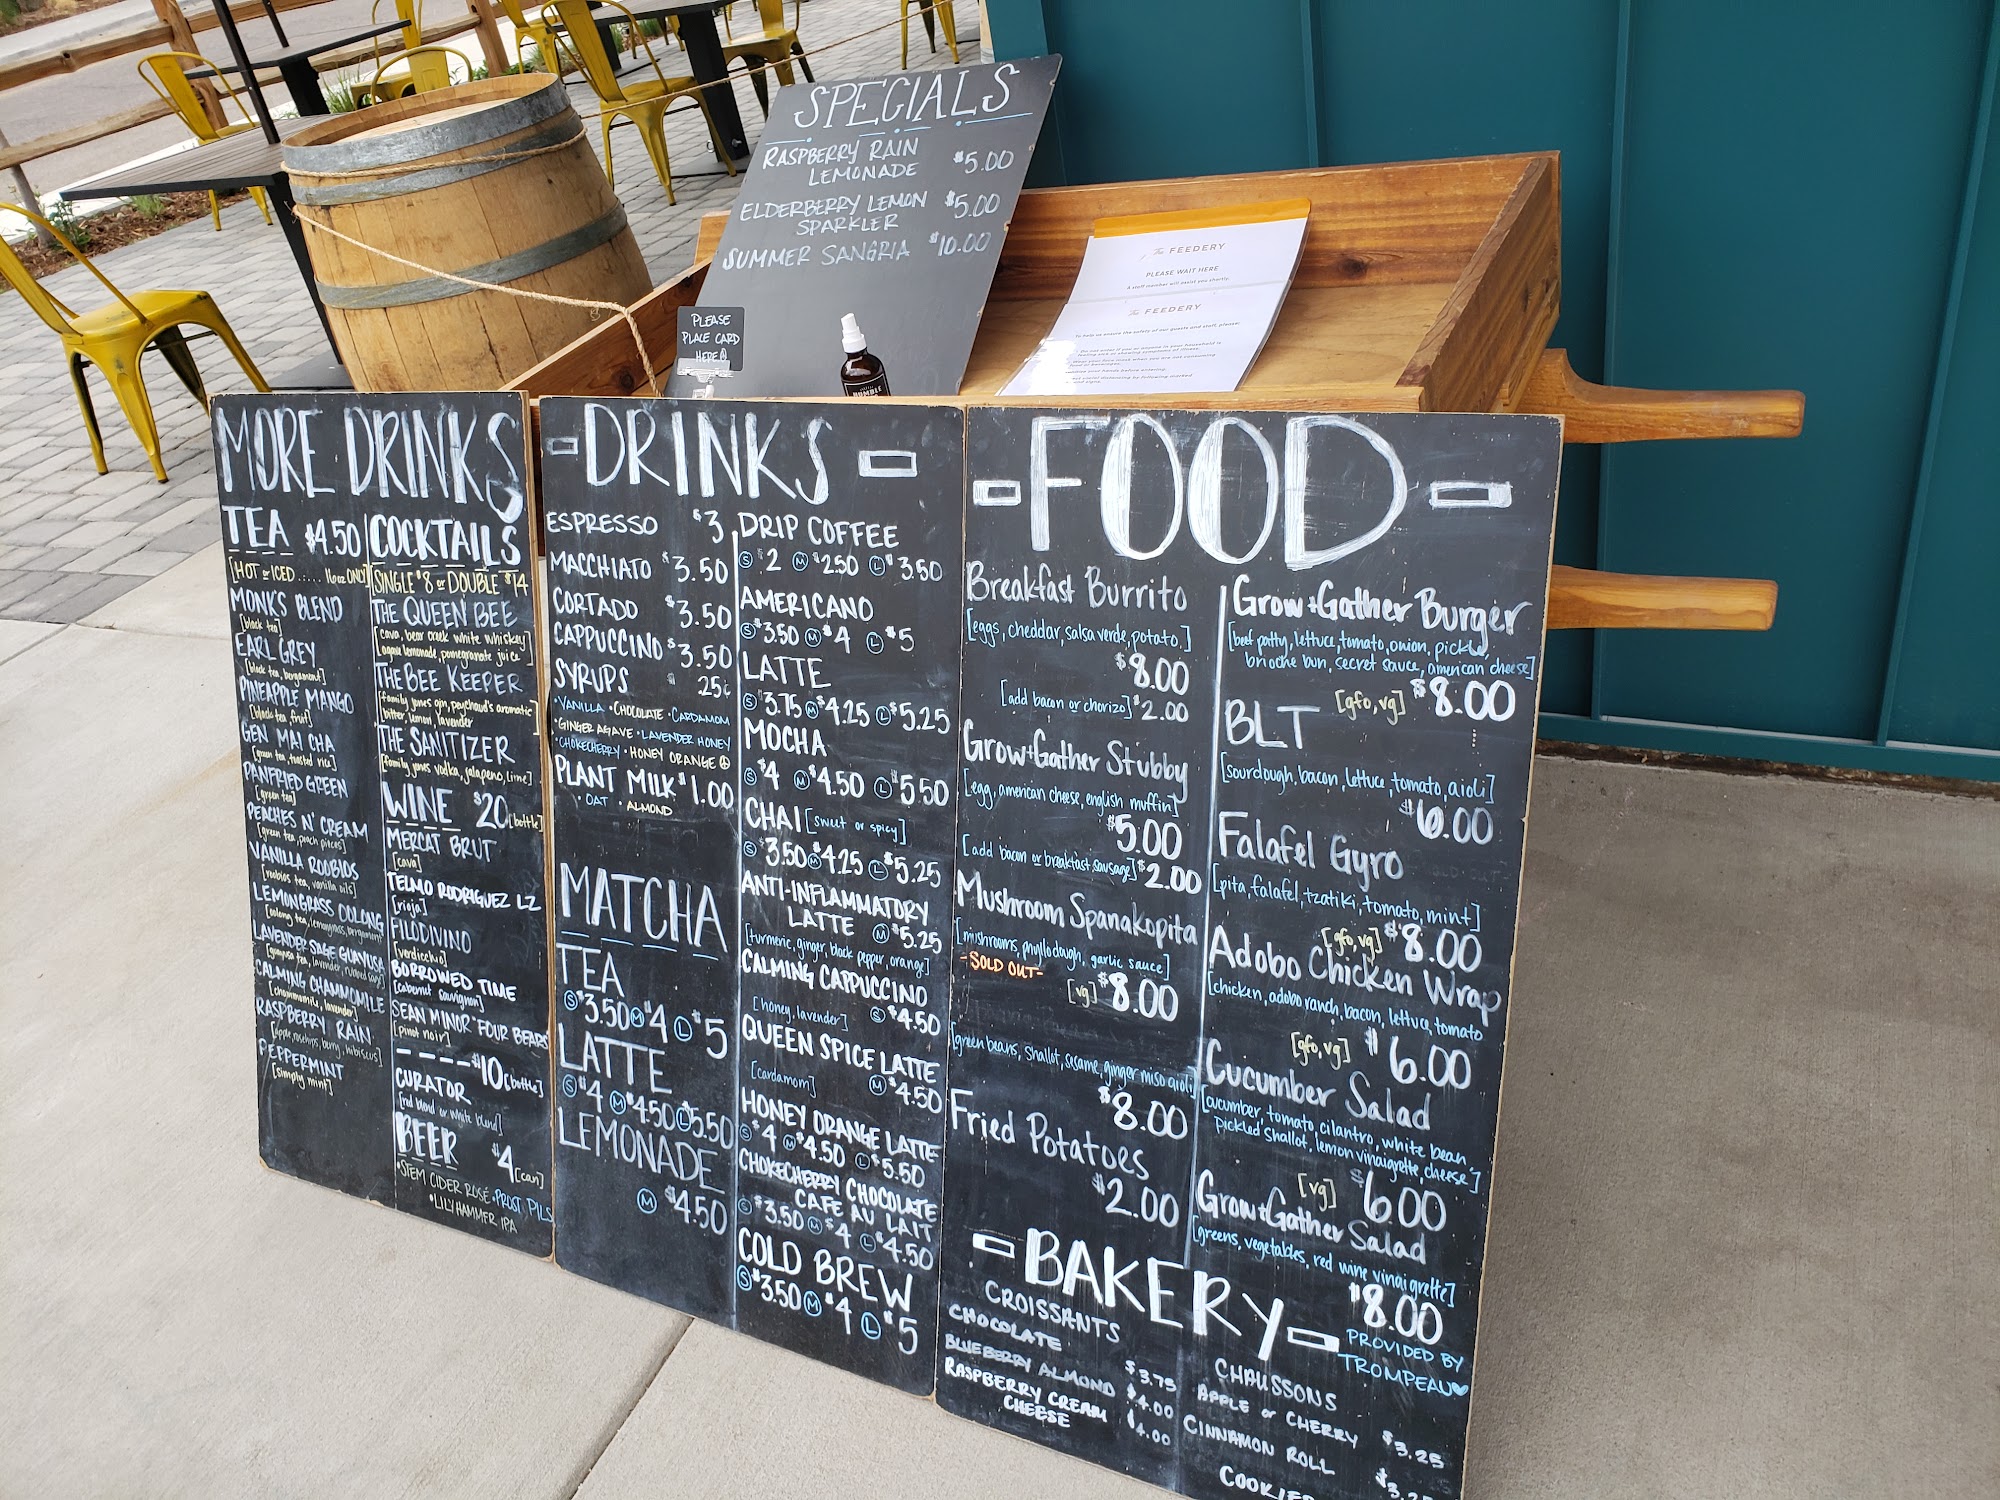 SPECIALS
RASPBERRY RAIN
LEMONADE $5.00
ELDERBERRY LEMON
SPARKLER $5.00
SUMMER SANGRIA $10.00
The FEEDERY
PLEASE WAIT HERE
A staff member will assist you shortly.
The FEEDERY
To help us ensure the safety of our guests and staff, please:
PLEASE
PLACE CARD
HERE
HUMBLE
MORE DRINKS
TEA $4.50
[HOT or ICED ..... 16oz ONLY]
MONK'S BLEND
[black tea]
EARL GREY
[black tea, bergamont]
PINEAPPLE MANGO
[black tea, fruit]
GEN MAI CHA
[green tea, toasted rice]
PANFRIED GREEN
[green tea]
PEACHES N' CREAM
[green tea, peach pieces]
VANILLA ROOIBIOS
[rooibios tea, vanilla oils]
LEMONGRASS OOLONG
[oolong tea, lemongrass, bergamont]
LAVENDER SAGE GUAYUSA
[guayusa tea, lavender, rubbed sage]
CALMING CHAMMOMILE
[chammomile, lavender]
RASPBERRY RAIN
[apple, rosehips, berry, hibiscus]
PEPPERMINT
[simply mint]
COCKTAILS
[SINGLE $8 or DOUBLE $14
THE QUEEN BEE
[cava, bear creek white whiskey,
agave lemonade, pomegranate juice]
THE BEE KEEPER
[family jones gin, peychaud's aromatic]
bitter, lemon, lavender
THE SANITIZER
[family jones vodka, jalapeno, lime]
WINE $20 [bottle]
MERCAT BRUT
[cava]
TELMO RODRIGUEZ LZ
[rioja]
FILODIVINO
[verdicchio]
BORROWED TIME
[cabernet sauvignon]
SEAN MINOR "FOUR BEARS
[pinot noir]
---- $10 [bottle]
CURATOR
[red blend or white blend]
BEER $4 [can]
•STEM CIDER ROSÉ •PROST PILS
•LILYHAMMER IPA
-DRINKS-
ESPRESSO $3
MACCHIATO $3.50
CORTADO $3.50
CAPPUCCINO $3.50
SYRUPS 25¢
•VANILLA •CHOCOLATE •CARDAMOM
•GINGER AGAVE •LAVENDER HONEY
•CHOKECHERRY •HONEY ORANGE
PLANT MILK $1.00
•OAT •ALMOND
MATCHA
TEA
S $3.50 M $4 L $5
LATTE
S $4 M $4.50 L $5.50
LEMONADE
M $4.50
DRIP COFFEE
S $2 M $2.50 L $3.50
AMERICANO
S $3.50 M $4 L $5
LATTE
S $3.75 M $4.25 L $5.25
MOCHA
S $4 M $4.50 L $5.50
CHAI [sweet or spicy]
S $3.50 M $4.25 L $5.25
ANTI-INFLAMMATORY
LATTE M $5.25
[turmeric, ginger, black pepper, orange]
CALMING CAPPUCCINO
[honey, lavender] S $4.50
QUEEN SPICE LATTE
[cardamom] M $4.50
HONEY ORANGE LATTE
S $4 M $4.50 L $5.50
CHOKECHERRY CHOCOLATE
CAFE AU LAIT
S $3.50 M $4 L $4.50
COLD BREW
S $3.50 M $4 L $5
-FOOD-
Breakfast Burrito
[eggs, cheddar, salsa verde, potato.]
$8.00
[add bacon or chorizo] $2.00
Grow+Gather Stubby
[egg, american cheese, english muffin]
$5.00
[add bacon or breakfast sausage] $2.00
Mushroom Spanakopita
[mushrooms, phyllo dough, garlic sauce]
-SOLD OUT-
[vg] $8.00
[green beans, shallot, sesame, ginger miso aioli]
$8.00
Fried Potatoes
$2.00
Grow+Gather Burger
[beef patty, lettuce, tomato, onion, pickle,
brioche bun, secret sauce, american cheese]
[gfo, vg] $8.00
BLT
[sourdough, bacon, lettuce, tomato, aioli]
$6.00
Falafel Gyro
[pita, falafel, tzatiki, tomato, mint]
[gfo, vg] $8.00
Adobo Chicken Wrap
[chicken, adobo ranch, bacon, lettuce, tomato
[gfo, vg] $6.00
Cucumber Salad
[cucumber, tomato, cilantro, white bean,
pickled shallot, lemon vinaigrette, cheese]
[vg] $6.00
Grow+Gather Salad
[greens, vegetables, red wine vinaigrette]
$8.00
-BAKERY-
PROVIDED BY
TROMPEAU
CROISSANTS
CHOCOLATE $3.75
BLUEBERRY ALMOND $4.00
RASPBERRY CREAM
CHEESE $4.00
CHAUSSONS
APPLE or CHERRY $3.25
CINNAMON ROLL $3.25